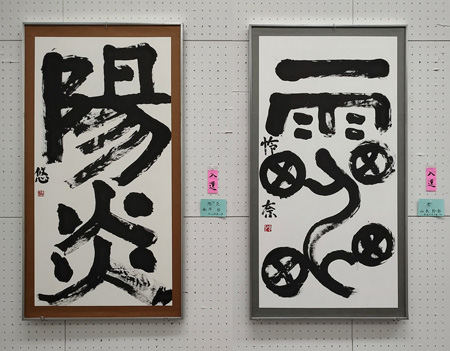 陽炎
悠
入選
雷
怜奈
入選